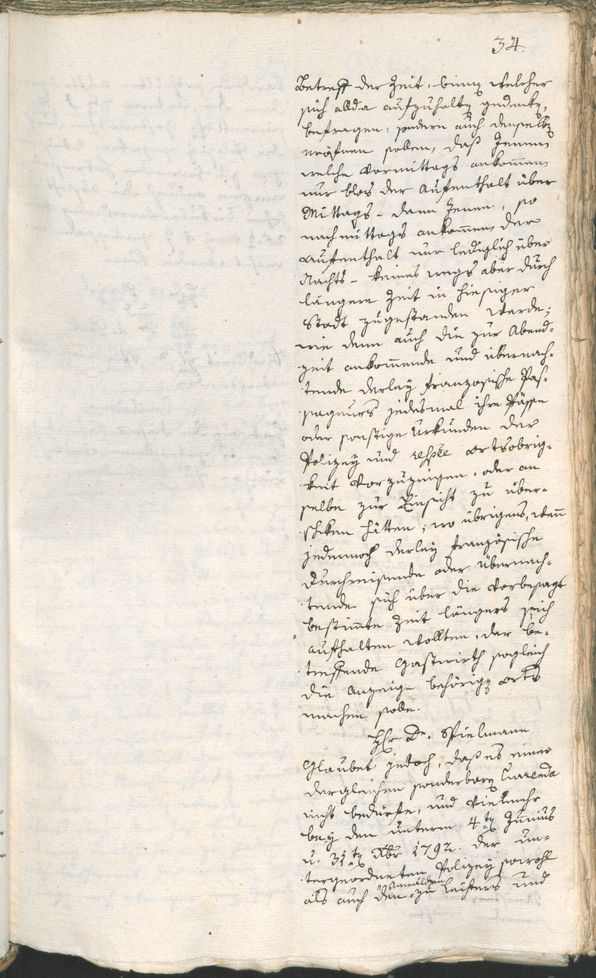 34.
Betreff der Zeit, binnen welcher
sich allda aufzuhalten gedenken,
befragen, sondern auch denselben
eröfnen sollen, daß Jenen
welche Vormittags ankommen
nur blos der Aufenthalt über
Mittags - dann Jenen, so
nachmittags ankommen der
Aufenthalt nur lediglich über
Nachts - keines wegs aber durch
längere Zeit in hiesiger
Stadt zugestanden werde;
wie dann auch die zur Abend-
zeit ankommende und übernach-
tende derley französische Pas-
sageurs jedesmal ihre Pässe
oder sonstige Urkunden der
Polizey und respve ortsobrig-
keit vorzuzeigen, oder an
selbe zur Einsicht zu über-
schiken hätten; wo übrigens, wenn
jedennoch derley französische
Durchreisende oder übernach-
tende sich über die vorbesagt
bestimmte Zeit längers
aufhalten wollten, der be-
treffende Gastwirth sogleich
die Anzeige behörigen orts
machen solle.
Hr. Dr. Spielmann
Glaubet jedoch, daß es einer
dergleichen sonderbaren Currenda
nicht bedürfe, und vielmehr
bey den unterm 4ten Junius
u. 31ten Xbr 1792. der un-
tergeordneten Polizey sowohl
als auch den zu und